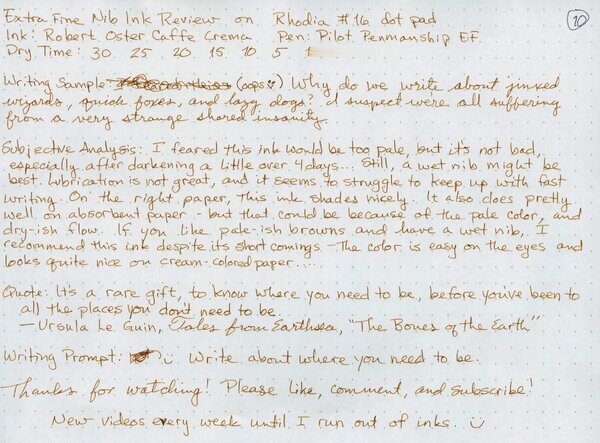 Extra Fine Nib Ink Review on Rhodia #16 dot pad
10
Ink: Robert Oster Caffe Crema Pen: Pilot Penmanship EF
Dry Time: 30 25 20 15 10 5 1
Writing Sample: (oops :) Why do we write about jinxed
wizards, quick foxes, and lazy dogs? I suspect we're all suffering
from a very strange shared insanity.
Subjective Analysis: I feared this ink would be too pale, but it's not bad,
especially after darkening a little over 4 days... Still, a wet nib might be
best. Lubrication is not great, and it seems to struggle to keep up with fast
writing. On the right paper, this ink shades nicely. It also does pretty
well on absorbent paper - but that could be because of the pale color, and
dry-ish flow. If you like pale-ish browns and have a wet nib, I
recommend this ink despite its short comings. The color is easy on the eyes and
looks quite nice on cream-colored paper....
Quote: It's a rare gift, to know where you need to be, before you've been to
all the places you don't need to be.
— Ursula Le Guin, Tales from Earthsea, "The Bones of the Earth"
Writing Prompt: :) Write about where you need to be.
Thanks for watching! Please like, comment, and subscribe!
New videos every week until I run out of inks. :)